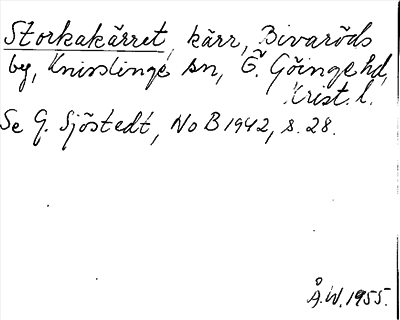 Storkakärret, kärr, Bivaröds
by, Knislinge sn, Ö. Göinge hd,
Krist. l.
Se G. Sjöstedt, No B 1942, s. 28.
Å.W. 1955.